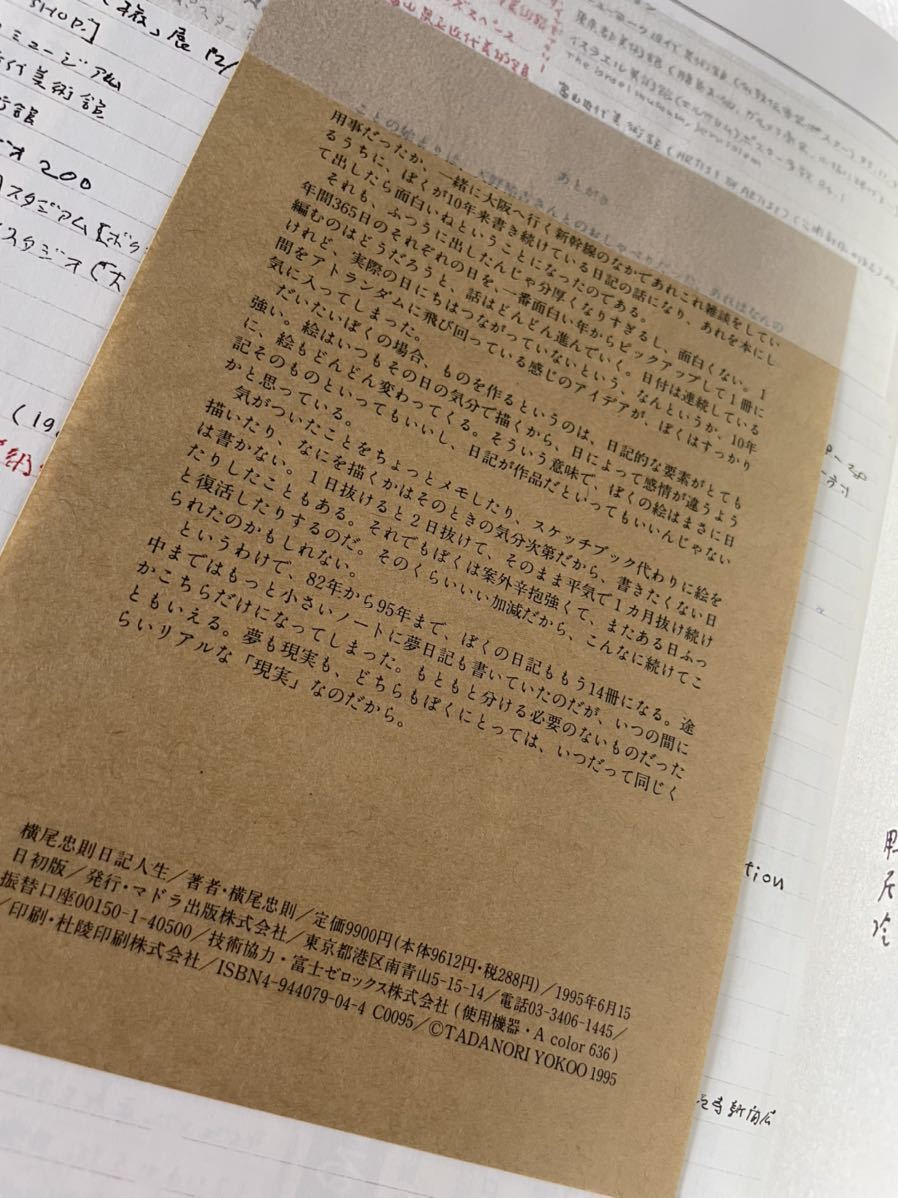 あとがき
ことの始まりは、天野祐吉さんとのおしゃべりだった。あれはなんの
用事だったか、一緒に大阪へ行く新幹線のなかであれこれ雑談をしてい
るうちに、ぼくが10年来書き続けている日記の話になり、あれを本にし
て出したら面白いねということになったのである。
それも、ふつうに出したんじゃ分厚くなりすぎるし、面白くない。1
年間365日のそれぞれの日を、一番面白い年からピックアップして1冊に
編むのはどうだろうと、話はどんどん進んでいく。日付は連続している
けれど、実際の日にちはつながっていないという、なんというか、10年
間をアトランダムに飛び回っている感じのアイデアが、ぼくはすっかり
気に入ってしまった。
だいたいぼくの場合、ものを作るというのは、日記的な要素がとても
強い。絵はいつもその日の気分で描くから、日によって感情が違うよう
に、絵もどんどん変わってくる。そういう意味で、ぼくの絵はまさに日
記そのものといってもいいし、日記が作品だといってもいいんじゃない
かと思っている。
気がついたことをちょっとメモしたり、スケッチブック代わりに絵を
描いたり、なにを描くかはそのときの気分次第だから、書きたくない日
は書かない。1日抜けると2日抜けて、そのまま平気で1カ月抜け続け
たりしたこともある。それでもぼくは案外辛抱強くて、またある日ふっ
と復活したりするのだ。そのくらいいい加減だから、こんなに続けてこ
られたのかもしれない。
というわけで、82年から95年まで、ぼくの日記ももう14冊になる。途
中まではもっと小さいノートに夢日記も書いていたのだが、いつの間に
かこちらだけになってしまった。もともと分ける必要のないものだった
ともいえる。夢も現実も、どちらもぼくにとっては、いつだって同じく
らいリアルな「現実」なのだから。
横尾忠則日記人生/著者・横尾忠則/定価9900円(本体9612円・税288円)/1995年6月15
日初版/発行・マドラ出版株式会社/東京都港区南青山5-15-14/電話03-3406-1445/
振替口座00150-1-40500/技術協力・富士ゼロックス株式会社(使用機器・A color 636)
/印刷・杜陵印刷株式会社/ISBN4-944079-04-4 C0095/©TADANORI YOKOO 1995
SHOP.]
ミュージアム
代美術館
術館
200
スタジアム
スタジオ
(19
tion
The Israel museum, Jerusalem